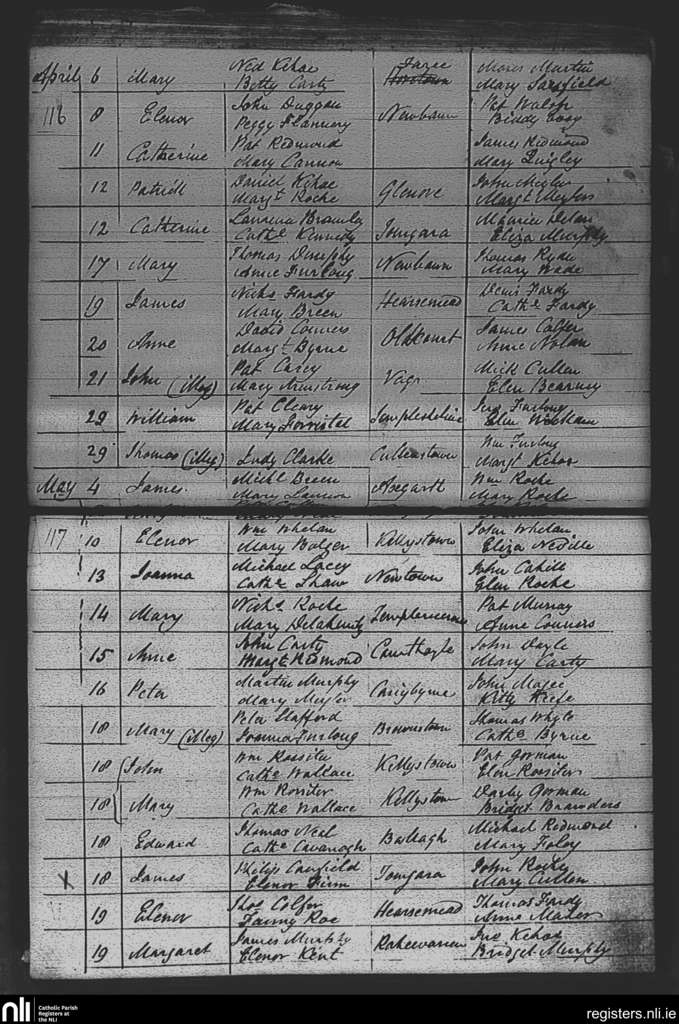 April 6 Mary Ned Kehoe Betty Carty Tazee Moses Martin Mary Sarsfield
116 8 Elenor John Duggan Peggy Flannery Newbawn Pat Walsh Biddy
11 Catherine Pat Redmond Mary Cannon James Redmond Mary Quigley
12 Patrick Daniel Kehoe Margt Roche Glenove John Meyler Margt Meyler
12 Catherine Laurence Cathe Kennedy Tomgara Maurice Eliza Murphy
17 Mary Thomas Dunphy Anne Furlong Newbawn Thomas Ryan Mary Wade
19 James Nichs Fardy Mary Breen Hearsemead Denis Fardy Cathe Fardy
20 Anne David Conners Margt Byrne Oldcourt James Colfer Anne Nolan
21 John (Illeg) Pat Casey Mary Armstrong Mick Cullen Elen Bearney
29 William Pat Cleary Mary Forristal Templeshelin Jno Furlong Elen
29 Thomas (Illeg) Judy Clarke Cullenstown Wm Furlong Margt Kehoe
May 4 James Michl Breen Mary Lannon Wm Roche Mary Roche
117 10 Elenor Wm Whelan Mary Bolger Kellystown John Whelan Eliza Neville
13 Joanna Michael Lacey Cathe Shaw Newtown John Cahill Elen Roche
14 Mary Nichs Roche Mary Delahunty Pat Murray Anne Conners
15 Anne John Carty Margt Redmond Courthoyle John Doyle Mary Carty
16 Peter Martin Murphy Mary Meyler Carrigbyrne John Magee Kitty Keefe
18 Mary (Illeg) Peter Stafford Joanna Furlong Brownstown Thomas Whyte Cathe Byrne
18 John Wm Rossiter Cathe Wallace Kellystown Pat Gorman Elen Rossiter
18 Mary Wm Rossiter Cathe Wallace Kellystown Darby Gorman Bridget
18 Edward Thomas Neal Cathe Cavanagh Ballagh Michael Redmond Mary Foley
x 18 James Philip Caulfield Elenor Firm Tomgara John Roche Mary Cullen
19 Elenor Thos Colfer Fanny Roe Hearsemead Thomas Fardy Anne
19 Margaret James Murphy Elenor Kent Jno Kehoe Bridget Murphy
nli Catholic Parish Registers at the NLI
registers.nli.ie